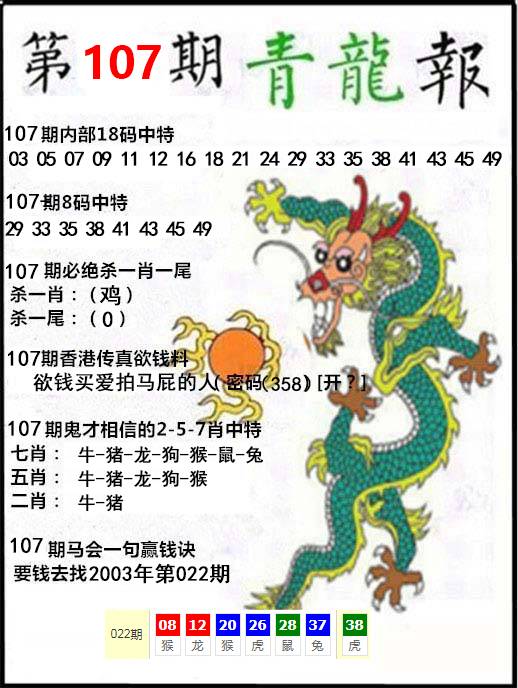 第107期 青龍報
107期内部18码中特
03 05 07 09 11 12 16 18 21 24 29 33 35 38 41 43 45 49
107期8码中特
29 33 35 38 41 43 45 49
107期必绝杀一肖一尾
杀一肖：（鸡）
杀一尾：（0）
107期香港传真欲钱料
欲钱买爱拍马屁的人(密码(358)[开？]
107期鬼才相信的2-5-7肖中特
七肖： 牛-猪-龙-狗-猴-鼠-兔
五肖： 牛-猪-龙-狗-猴
二肖： 牛-猪
107期马会一句赢钱诀
要钱去找2003年第022期
022期 08 12 20 26 28 37 38
猴 龙 猴 虎 鼠 兔 虎